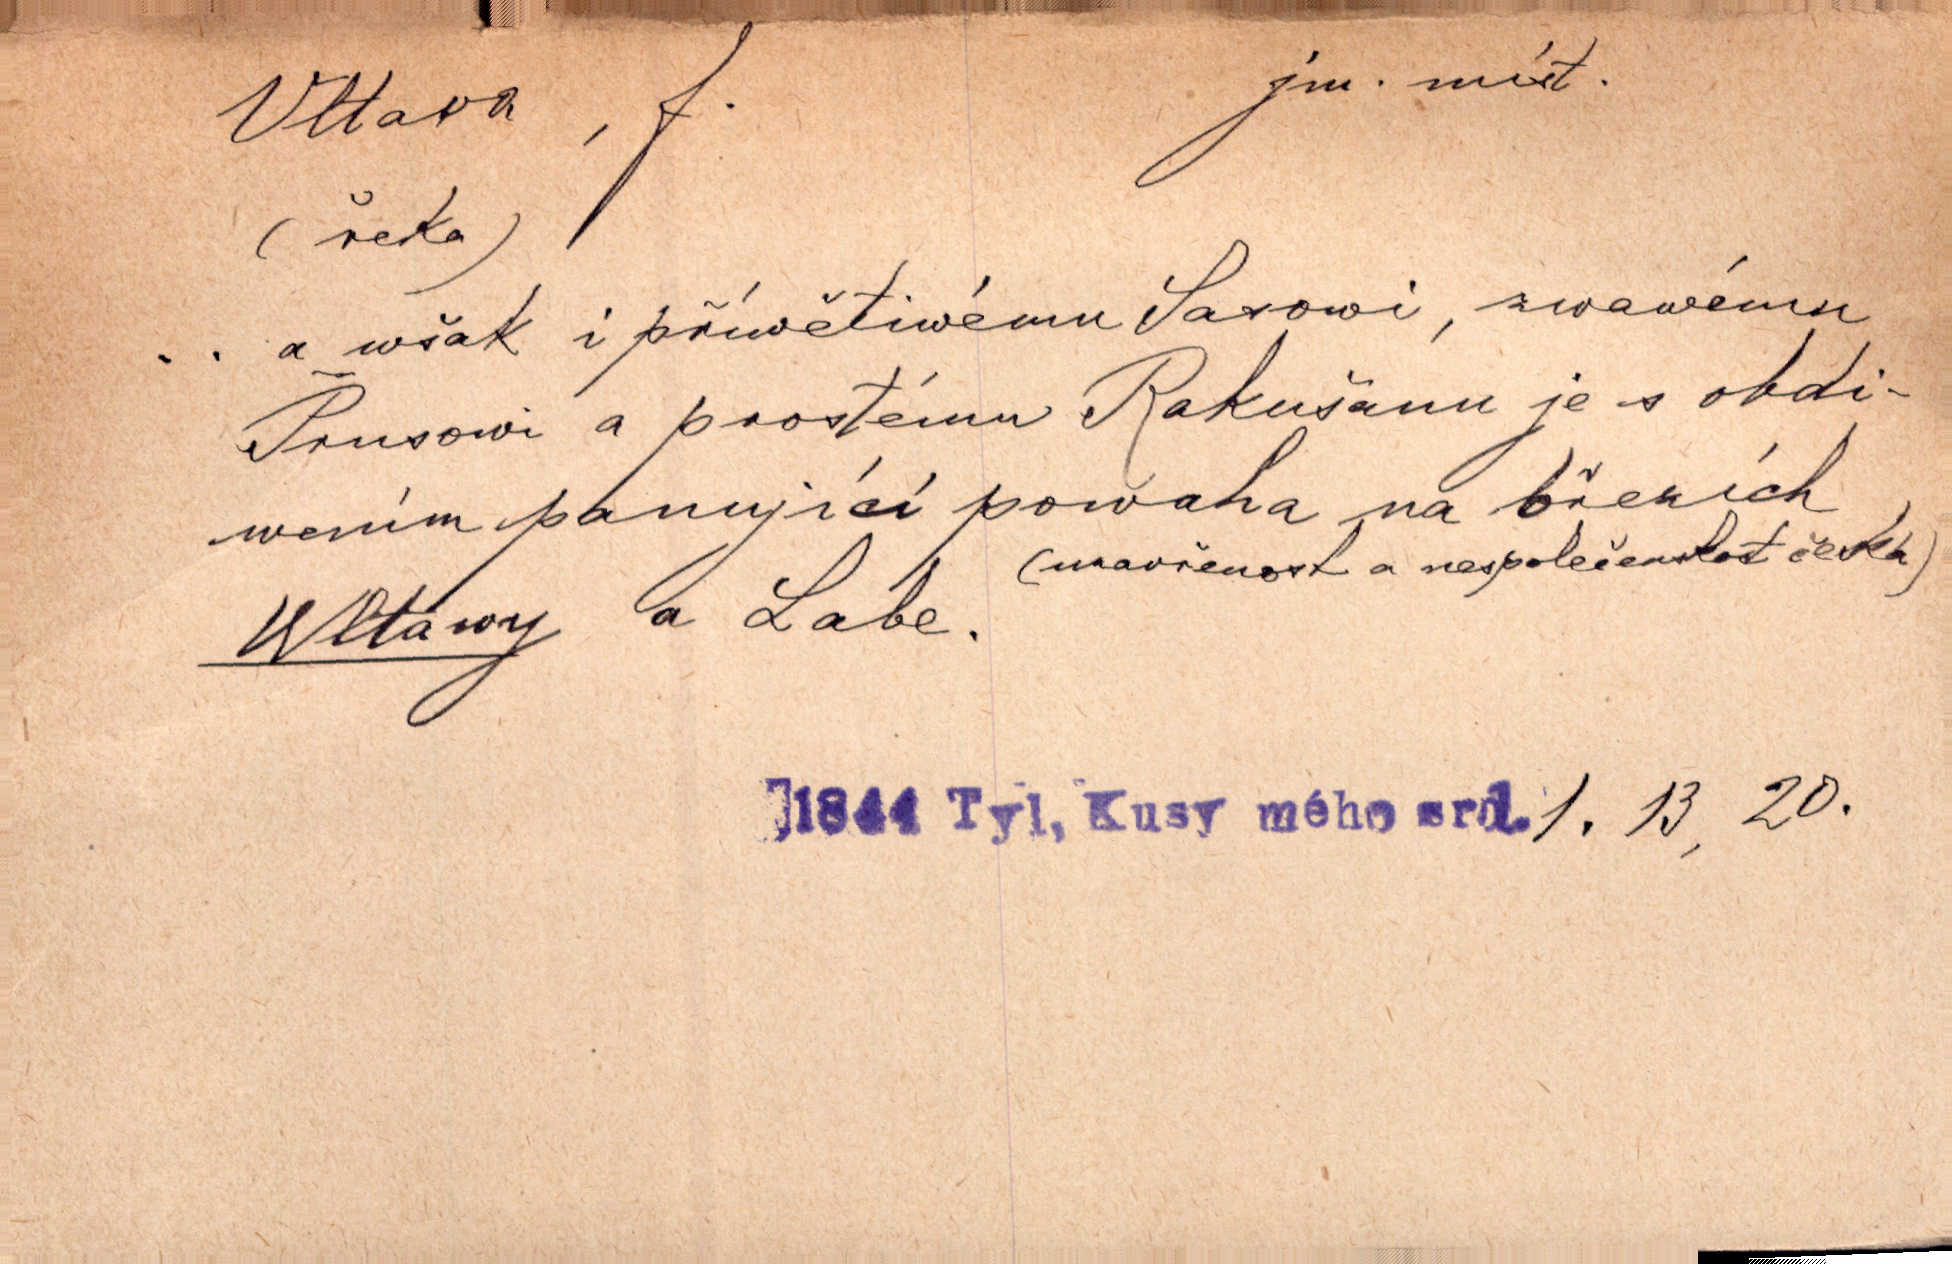 Vltava, f. jm. míst.
(řeka)
. . a wšak i přiwětiwému Sasowi, zwawému
Prusowi a prostému Rakušanu je s obdi-
wením panující powaha na březích
(uzavřenost a nespolečenskost česká)
Wltawy a Labe.
1844 Tyl, Kusy mého srd. 1. 13, 20.